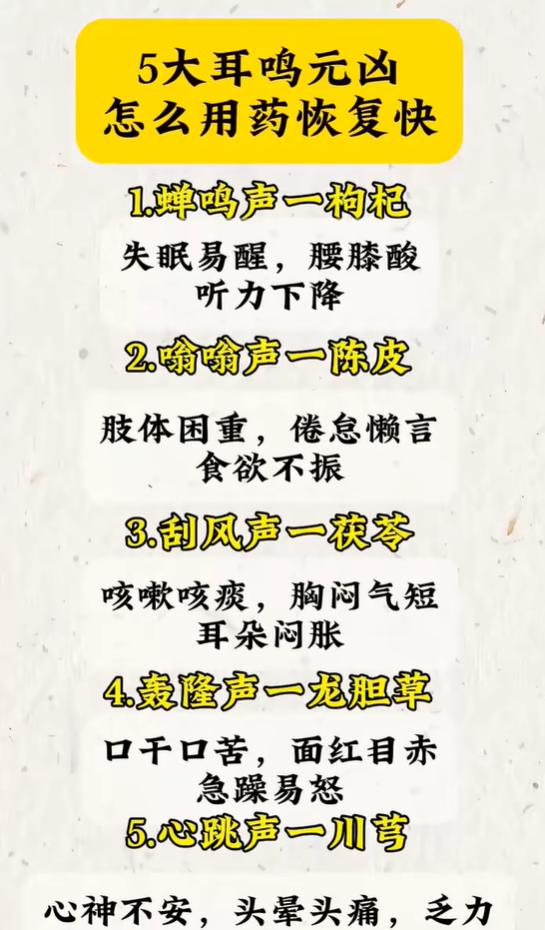 5大耳鸣元凶
怎么用药恢复快
1.蝉鸣声一枸杞
失眠易醒，腰膝酸
听力下降
2.嗡嗡声一陈皮
肢体困重，倦怠懒言
食欲不振
3.刮风声一茯苓
咳嗽咳痰，胸闷气短
耳朵闷胀
4.轰隆声一龙胆草
口干口苦，面红目赤
急躁易怒
5.心跳声一川芎
心神不安，头晕头痛，乏力